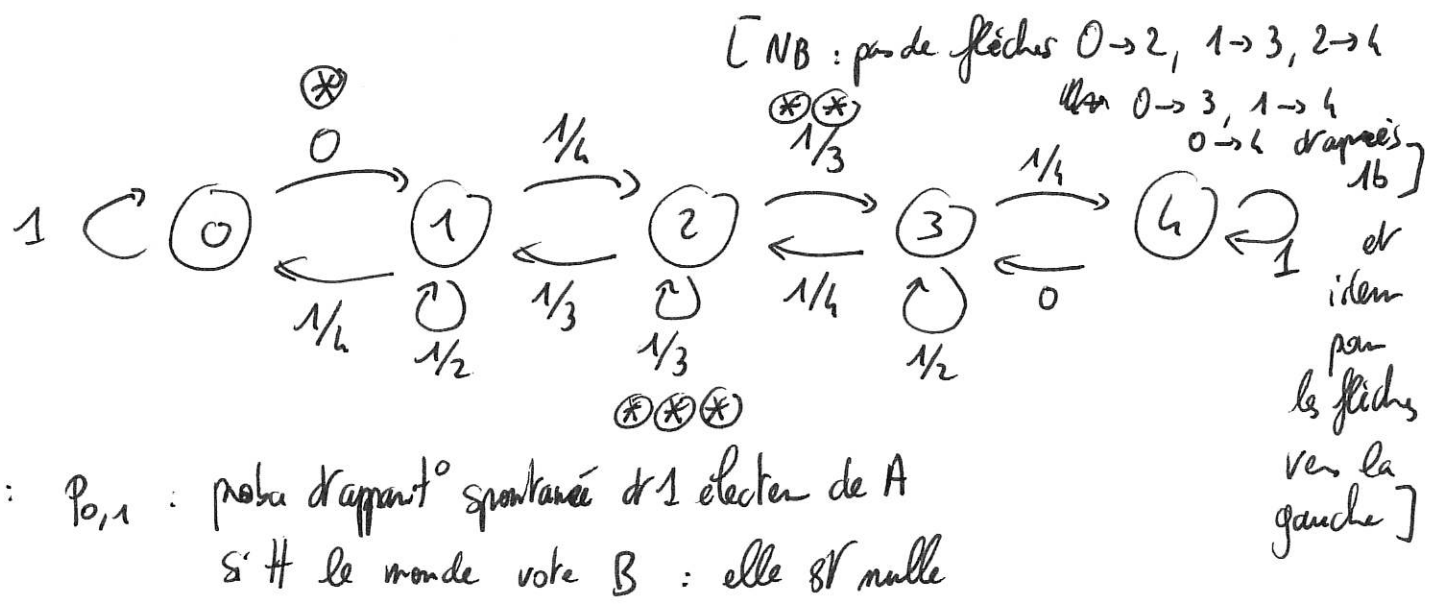 [NB : pas de flèches 0→2, 1→3, 2→4
0→3, 1→4
0→4 d'après
1b]
et
idem
pour
les flèches
vers la
gauche]
⊛
0
1/4
⊛⊛
1/3
1/4
1
0
1
2
3
4
1
1/4
1/2
1/3
1/3
1/4
1/2
0
⊛⊛⊛
: P0,1 : proba d'apparit° spontanée d'1 électeur de A
si # le monde vote B : elle est nulle